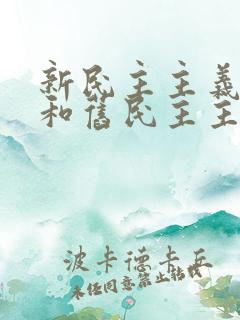 新民主主義
和舊民主主
波卡德卡兵
未经同意禁止转载